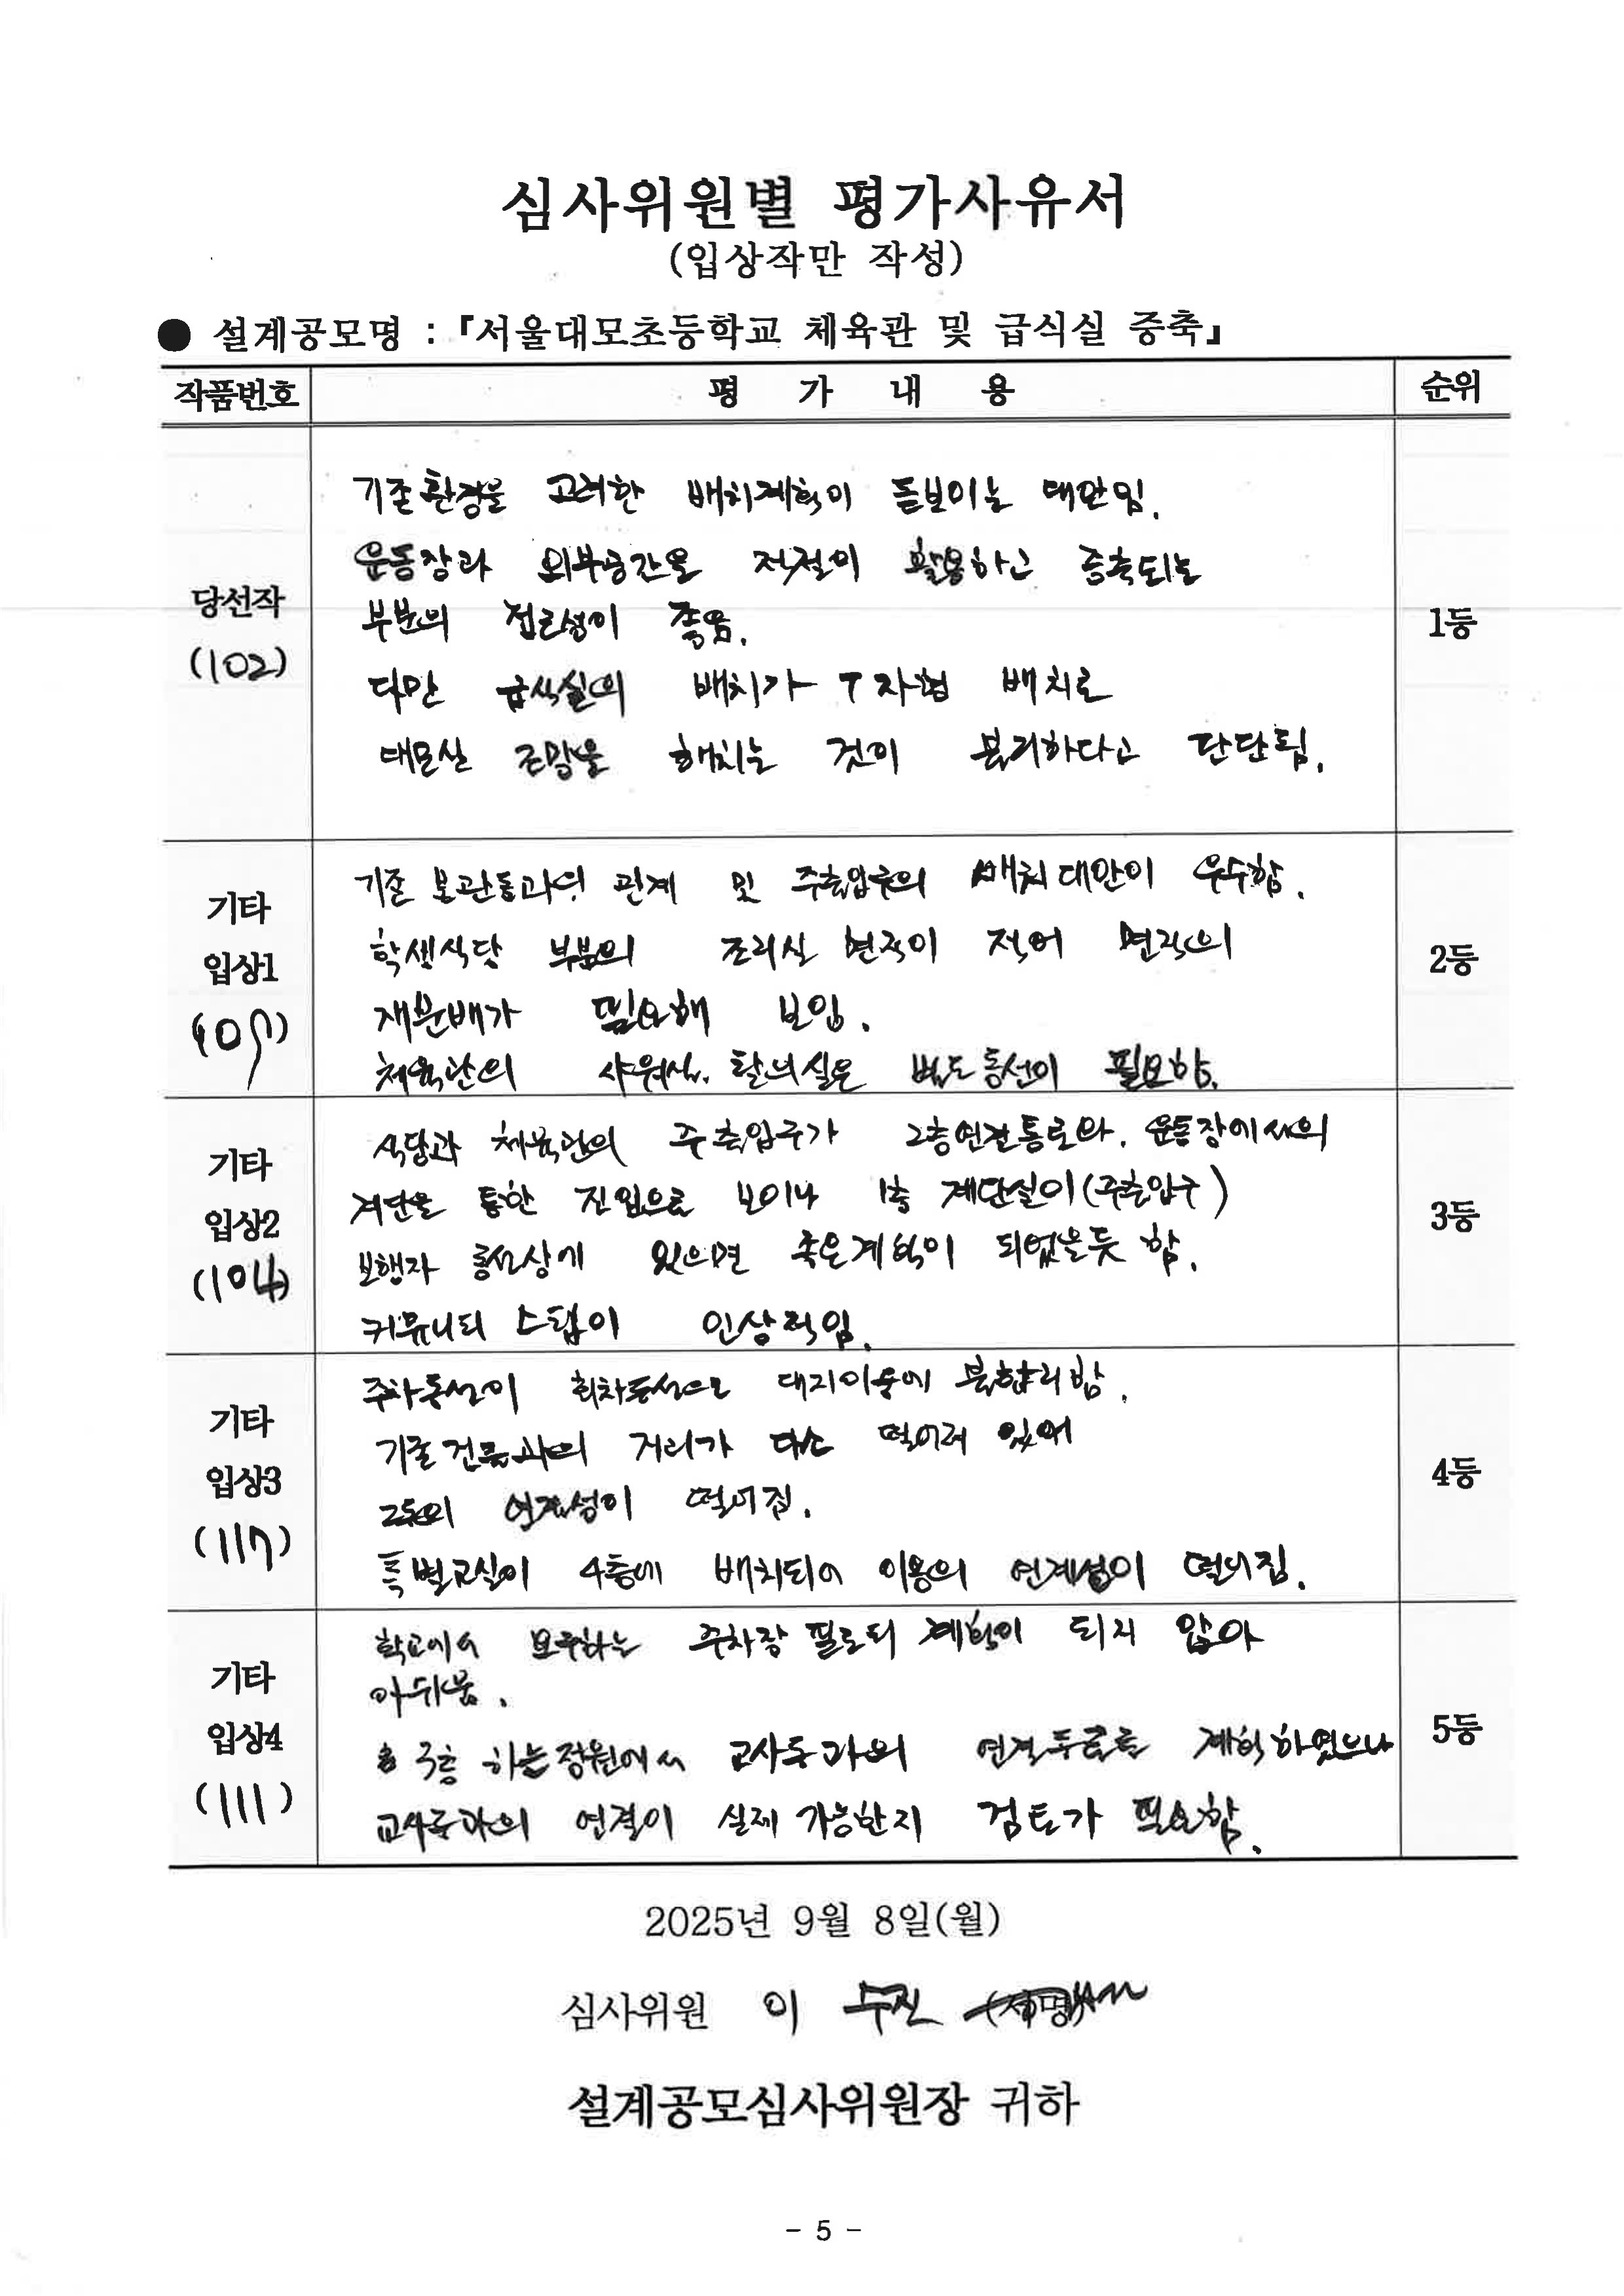 심사위원별 평가사유서
(입상작만 작성)
● 설계공모명 : 『서울대모초등학교 체육관 및 급식실 증축』
작품번호 평 가 내 용 순위
당선작
(102)
기존환경을 고려한 배치계획이 돋보이는 대안임.
운동장과 외부공간을 적절이 활용하고 증축되는
부분의 접근성이 좋음.
다만 급식실의 배치가 T자형 배치로
대모산 조망을 해치는 것이 불리하다고 판단됨.
1등
기타
입상1
(107)
기존 본관동과의 관계 및 주출입구의 배치대안이 우수함.
학생식당 부분의 조리실 면적이 적어 면적의
재분배가 필요해 보임.
체육관의 샤워실, 탈의실은 별도동선이 필요함.
2등
기타
입상2
(104)
식당과 체육관의 주출입구가 2층연결통로와, 운동장에서의
계단을 통한 진입으로 보이나 1층 계단실이(주출입구)
보행자 동선상에 있으면 좋은계획이 되었을듯 함.
커뮤니티 스텝이 인상적임.
3등
기타
입상3
(117)
주차동선이 회차동선으로 대지이용에 불합리함.
기존건물과의 거리가 다소 떨어져 있어
연계성이 떨어짐.
특별교실이 4층에 배치되어 이용의 연계성이 떨어짐.
4등
기타
입상4
(111)
학교에서 요구하는 주차장 필로티 계획이 되지 않아
아쉬움.
3층 하늘정원에서 교사동과의 연결통로를 계획하였으나
교사동과의 연결이 실제 가능한지 검토가 필요함.
5등
2025년 9월 8일(월)
심사위원 이 수진 (서명)
설계공모심사위원장 귀하
- 5 -